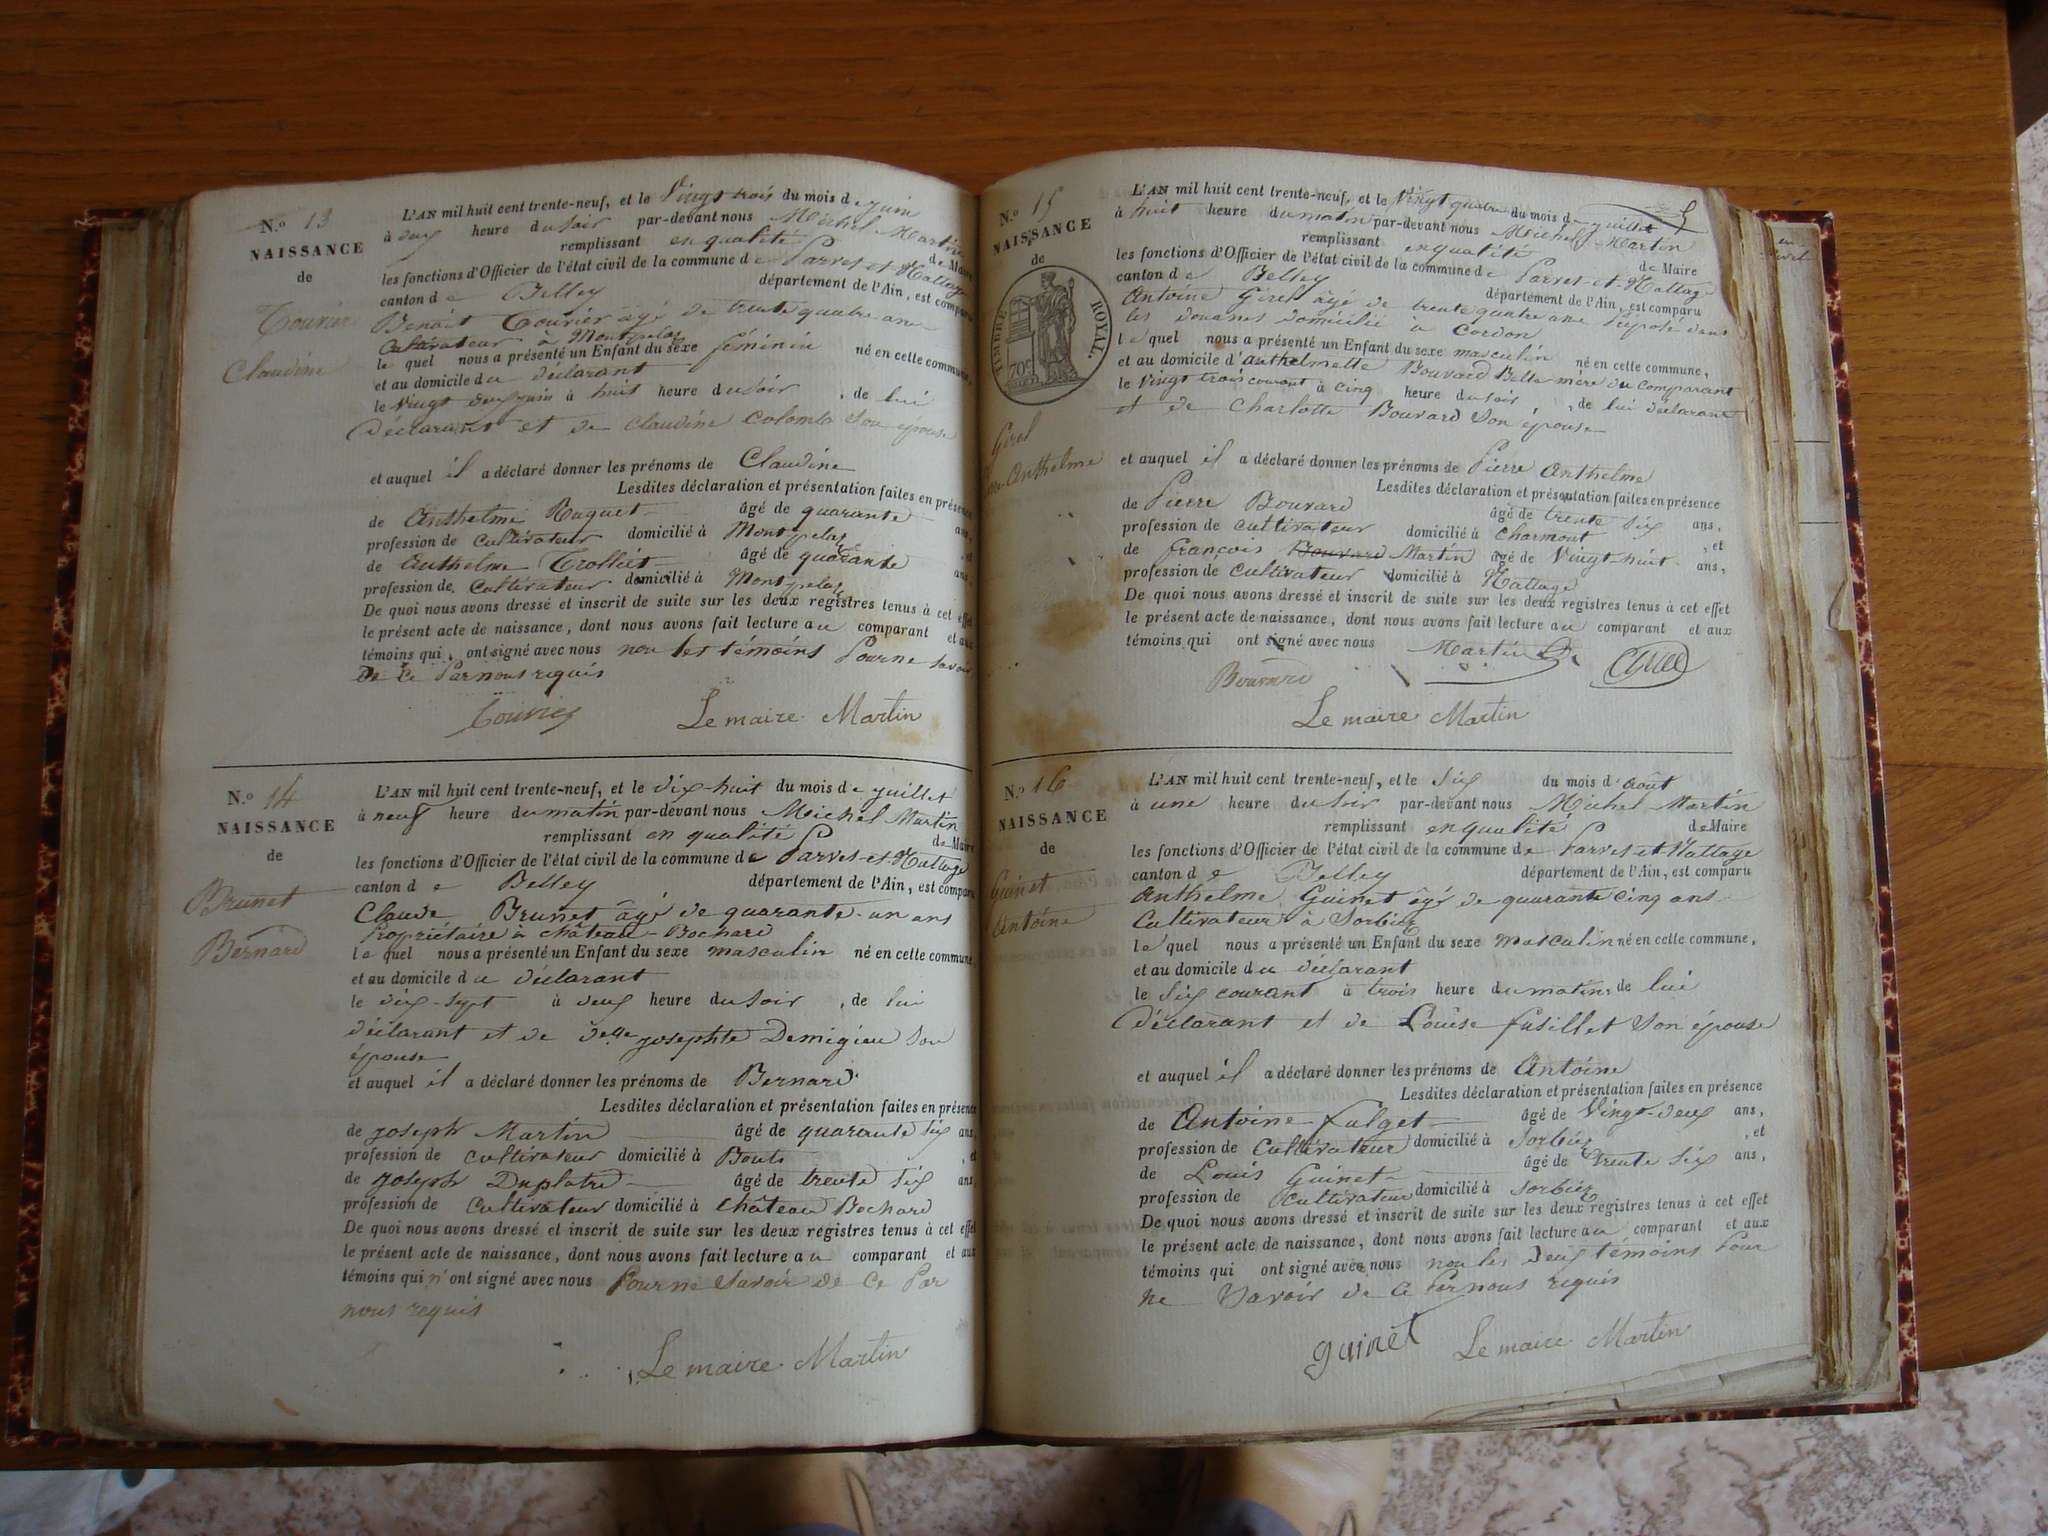 N.º 13
NAISSANCE
de
Tournier
Claudine
L'AN mil huit cent trente-neuf, et le Vingt trois du mois de juin
à deux heure du soir par-devant nous Michel Martin
remplissant en qualité de Maire
les fonctions d'Officier de l'état civil de la commune de Parves-et-Nattage
canton de Belley département de l'Ain, est comparu
Benoit âgé de trente quatre ans
Cultivateur à Montpelaz
le quel nous a présenté un Enfant du sexe féminin né en cette commune,
et au domicile du déclarant
le Vingt deux juin à huit heure du soir, de lui
déclarant et de Claudine Colomb son épouse
et auquel il a déclaré donner les prénoms de Claudine
Lesdites déclaration et présentation faites en présence
de Anthelme Huguet âgé de quarante ans,
profession de Cultivateur domicilié à Montpelaz, et
de Anthelme Trolliet âgé de quarante ans,
profession de Cultivateur domicilié à Montpelaz
De quoi nous avons dressé et inscrit de suite sur les deux registres tenus à cet effet
le présent acte de naissance, dont nous avons fait lecture au comparant et aux
témoins qui ont signé avec nous non les témoins Pour ne savoir
de ce Par nous requis
Le maire Martin
N.º 14
NAISSANCE
de
Brunet
Bernard
L'AN mil huit cent trente-neuf, et le dix-huit du mois de juillet
à neuf heure du matin par-devant nous Michel Martin
remplissant en qualité de Maire
les fonctions d'Officier de l'état civil de la commune de Parves-et-Nattage
canton de Belley département de l'Ain, est comparu
Claude Brunet âgé de quarante-un ans
Propriétaire à château-Bochard
le quel nous a présenté un Enfant du sexe masculin né en cette commune,
et au domicile du déclarant
le dix-sept à deux heure du soir, de lui
déclarant et de Delle josephte Demigieu son
épouse
et auquel il a déclaré donner les prénoms de Bernard
Lesdites déclaration et présentation faites en présence
de joseph Martin âgé de quarante six ans,
profession de cultivateur domicilié à Bouts, et
de joseph Duplatre âgé de trente six ans
profession de cultivateur domicilié à château Bochard
De quoi nous avons dressé et inscrit de suite sur les deux registres tenus à cet effet
le présent acte de naissance, dont nous avons fait lecture au comparant et aux
témoins qui n'ont signé avec nous Pour ne savoir de ce Par
nous requis
Le maire Martin
5
N.º 15
NAISSANCE
de
TIMBRE ROYAL.
70c
Girel
Anthelme
L'AN mil huit cent trente-neuf, et le Vingt quatre du mois de juillet
à huit heure du matin par-devant nous Michel Martin
remplissant en qualité de Maire
les fonctions d'Officier de l'état civil de la commune de Parves-et-Nattage
canton de Belley département de l'Ain, est comparu
Antoine Girel âgé de trente quatre ans Préposé dans
les douanes domicilié à Cordon
le quel nous a présenté un Enfant du sexe masculin né en cette commune,
et au domicile d'anthelmette Bouvard Belle mère du comparant
le Vingt trois courant à cinq heure du soir, de lui déclarant
et de Charlotte Bouvard son épouse
et auquel il a déclaré donner les prénoms de Pierre Anthelme
Lesdites déclaration et présentation faites en présence
de Pierre Bouvard âgé de trente six ans,
profession de cultivateur domicilié à Charmont, et
de françois Bouvard Martin âgé de Vingt-huit ans,
profession de cultivateur domicilié à Nattage
De quoi nous avons dressé et inscrit de suite sur les deux registres tenus à cet effet
le présent acte de naissance, dont nous avons fait lecture au comparant et aux
témoins qui ont signé avec nous Martin Girel
Bouvard
Le maire Martin
N.º 16
NAISSANCE
de
Guinet
Antoine
L'AN mil huit cent trente-neuf, et le Six du mois d'août
à une heure du soir par-devant nous Michel Martin
remplissant en qualité de Maire
les fonctions d'Officier de l'état civil de la commune de Parves-et-Nattage
canton de Belley département de l'Ain, est comparu
Anthelme Guinet âgé de quarante cinq ans
Cultivateur à Sorbier
le quel nous a présenté un Enfant du sexe masculin né en cette commune,
et au domicile du déclarant
le Six courant à trois heure du matin, de lui
déclarant et de Louise fusillet son épouse
et auquel il a déclaré donner les prénoms de Antoine
Lesdites déclaration et présentation faites en présence
de Antoine fulget âgé de Vingt-deux ans,
profession de Cultivateur domicilié à Sorbier, et
de Louis Guinet âgé de trente six ans,
profession de Cultivateur domicilié à Sorbier
De quoi nous avons dressé et inscrit de suite sur les deux registres tenus à cet effet
le présent acte de naissance, dont nous avons fait lecture au comparant et aux
témoins qui ont signé avec nous non les deux témoins Pour
ne Savoir de ce Par nous requis
guinet Le maire Martin